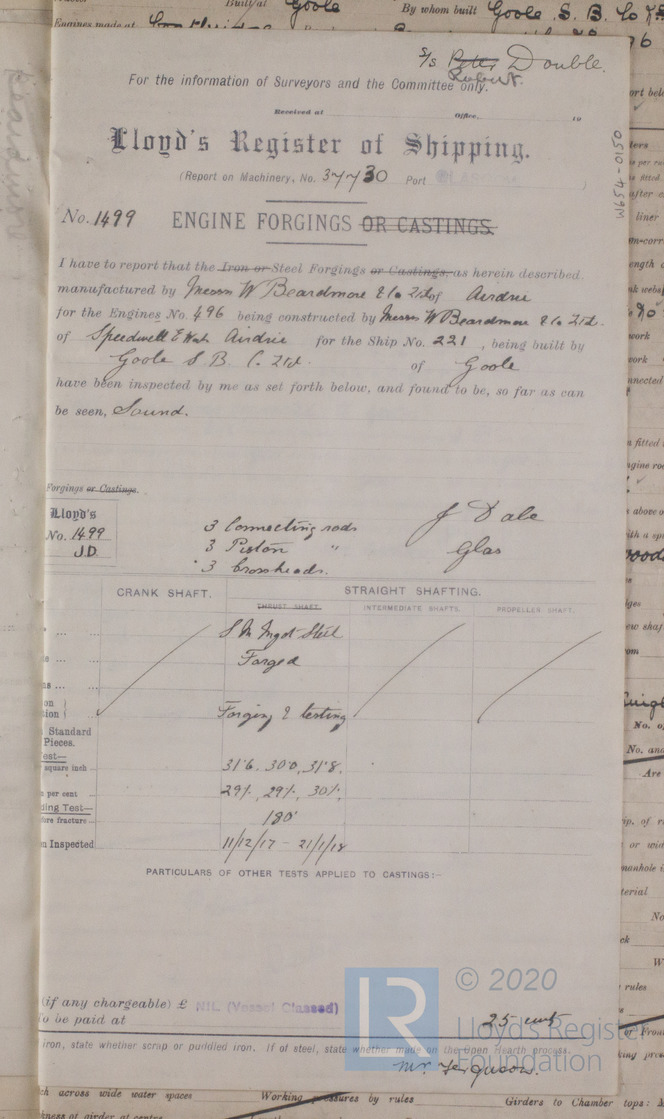 Built at Goole By whom built Goole S. B. Co
Engines made at
S/s Peter Double.
Rupert.
For the information of Surveyors and the Committee only.
Received at Office, to
Lloyd's Register of Shipping.
(Report on Machinery, No. 37730 Port GLASGOW
W654-0150
No. 1499 ENGINE FORGINGS OR CASTINGS.
I have to report that the Iron or Steel Forgings or Castings, as herein described
manufactured by Messrs W Beardmore & Co Ltd of Airdrie
for the Engines No. 496 being constructed by Messrs W Beardmore & Co Ltd.
of Speedwell E Works Airdrie for the Ship No. 221, being built by
Goole S B C. Ltd. of Goole
have been inspected by me as set forth below, and found to be, so far as can
be seen, Sound.
Forgings or Castings.
Lloyd's
No. 1499
J.D.
3 Connecting rods
3 Piston "
3 Crossheads.
J Dale
Glas
CRANK SHAFT. STRAIGHT SHAFTING.
THRUST SHAFT. INTERMEDIATE SHAFTS. PROPELLER SHAFT.
S M Ingot Steel
Forged
Forging & testing
Standard
Pieces.
square inch 31.6, 30.0, 31.8.
per cent 29%, 29%, 30%,
ding Test—
fore fracture 180°
Inspected 11/12/17 - 21/1/18
PARTICULARS OF OTHER TESTS APPLIED TO CASTINGS:—
(if any chargeable) £ NIL (Vessel Classed)
to be paid at
25 cwts
iron, state whether scrap or puddled iron. If of steel, state whether made on the Open Hearth process.
Mr. Ferguson.
© 2020
LR
Lloyd's Register
Foundation
ch across wide water spaces Working pressures by rules Girders to Chamber tops:
kness of girder at centre